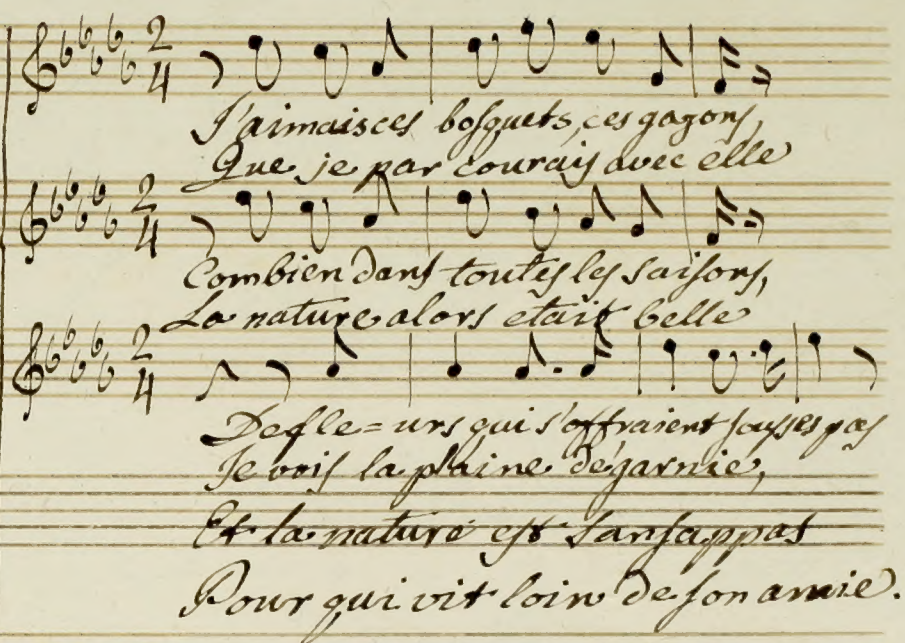 J'aimais ces bosquets, ces gazons,
Que je par courais avec elle
Combien dans toutes les saisons,
La nature alors etait belle
De fle=urs qui s'offraient sous ses pas
Je vois la plaine dégarnie,
Et la nature est sans appas
Pour qui vit loin de son amie.